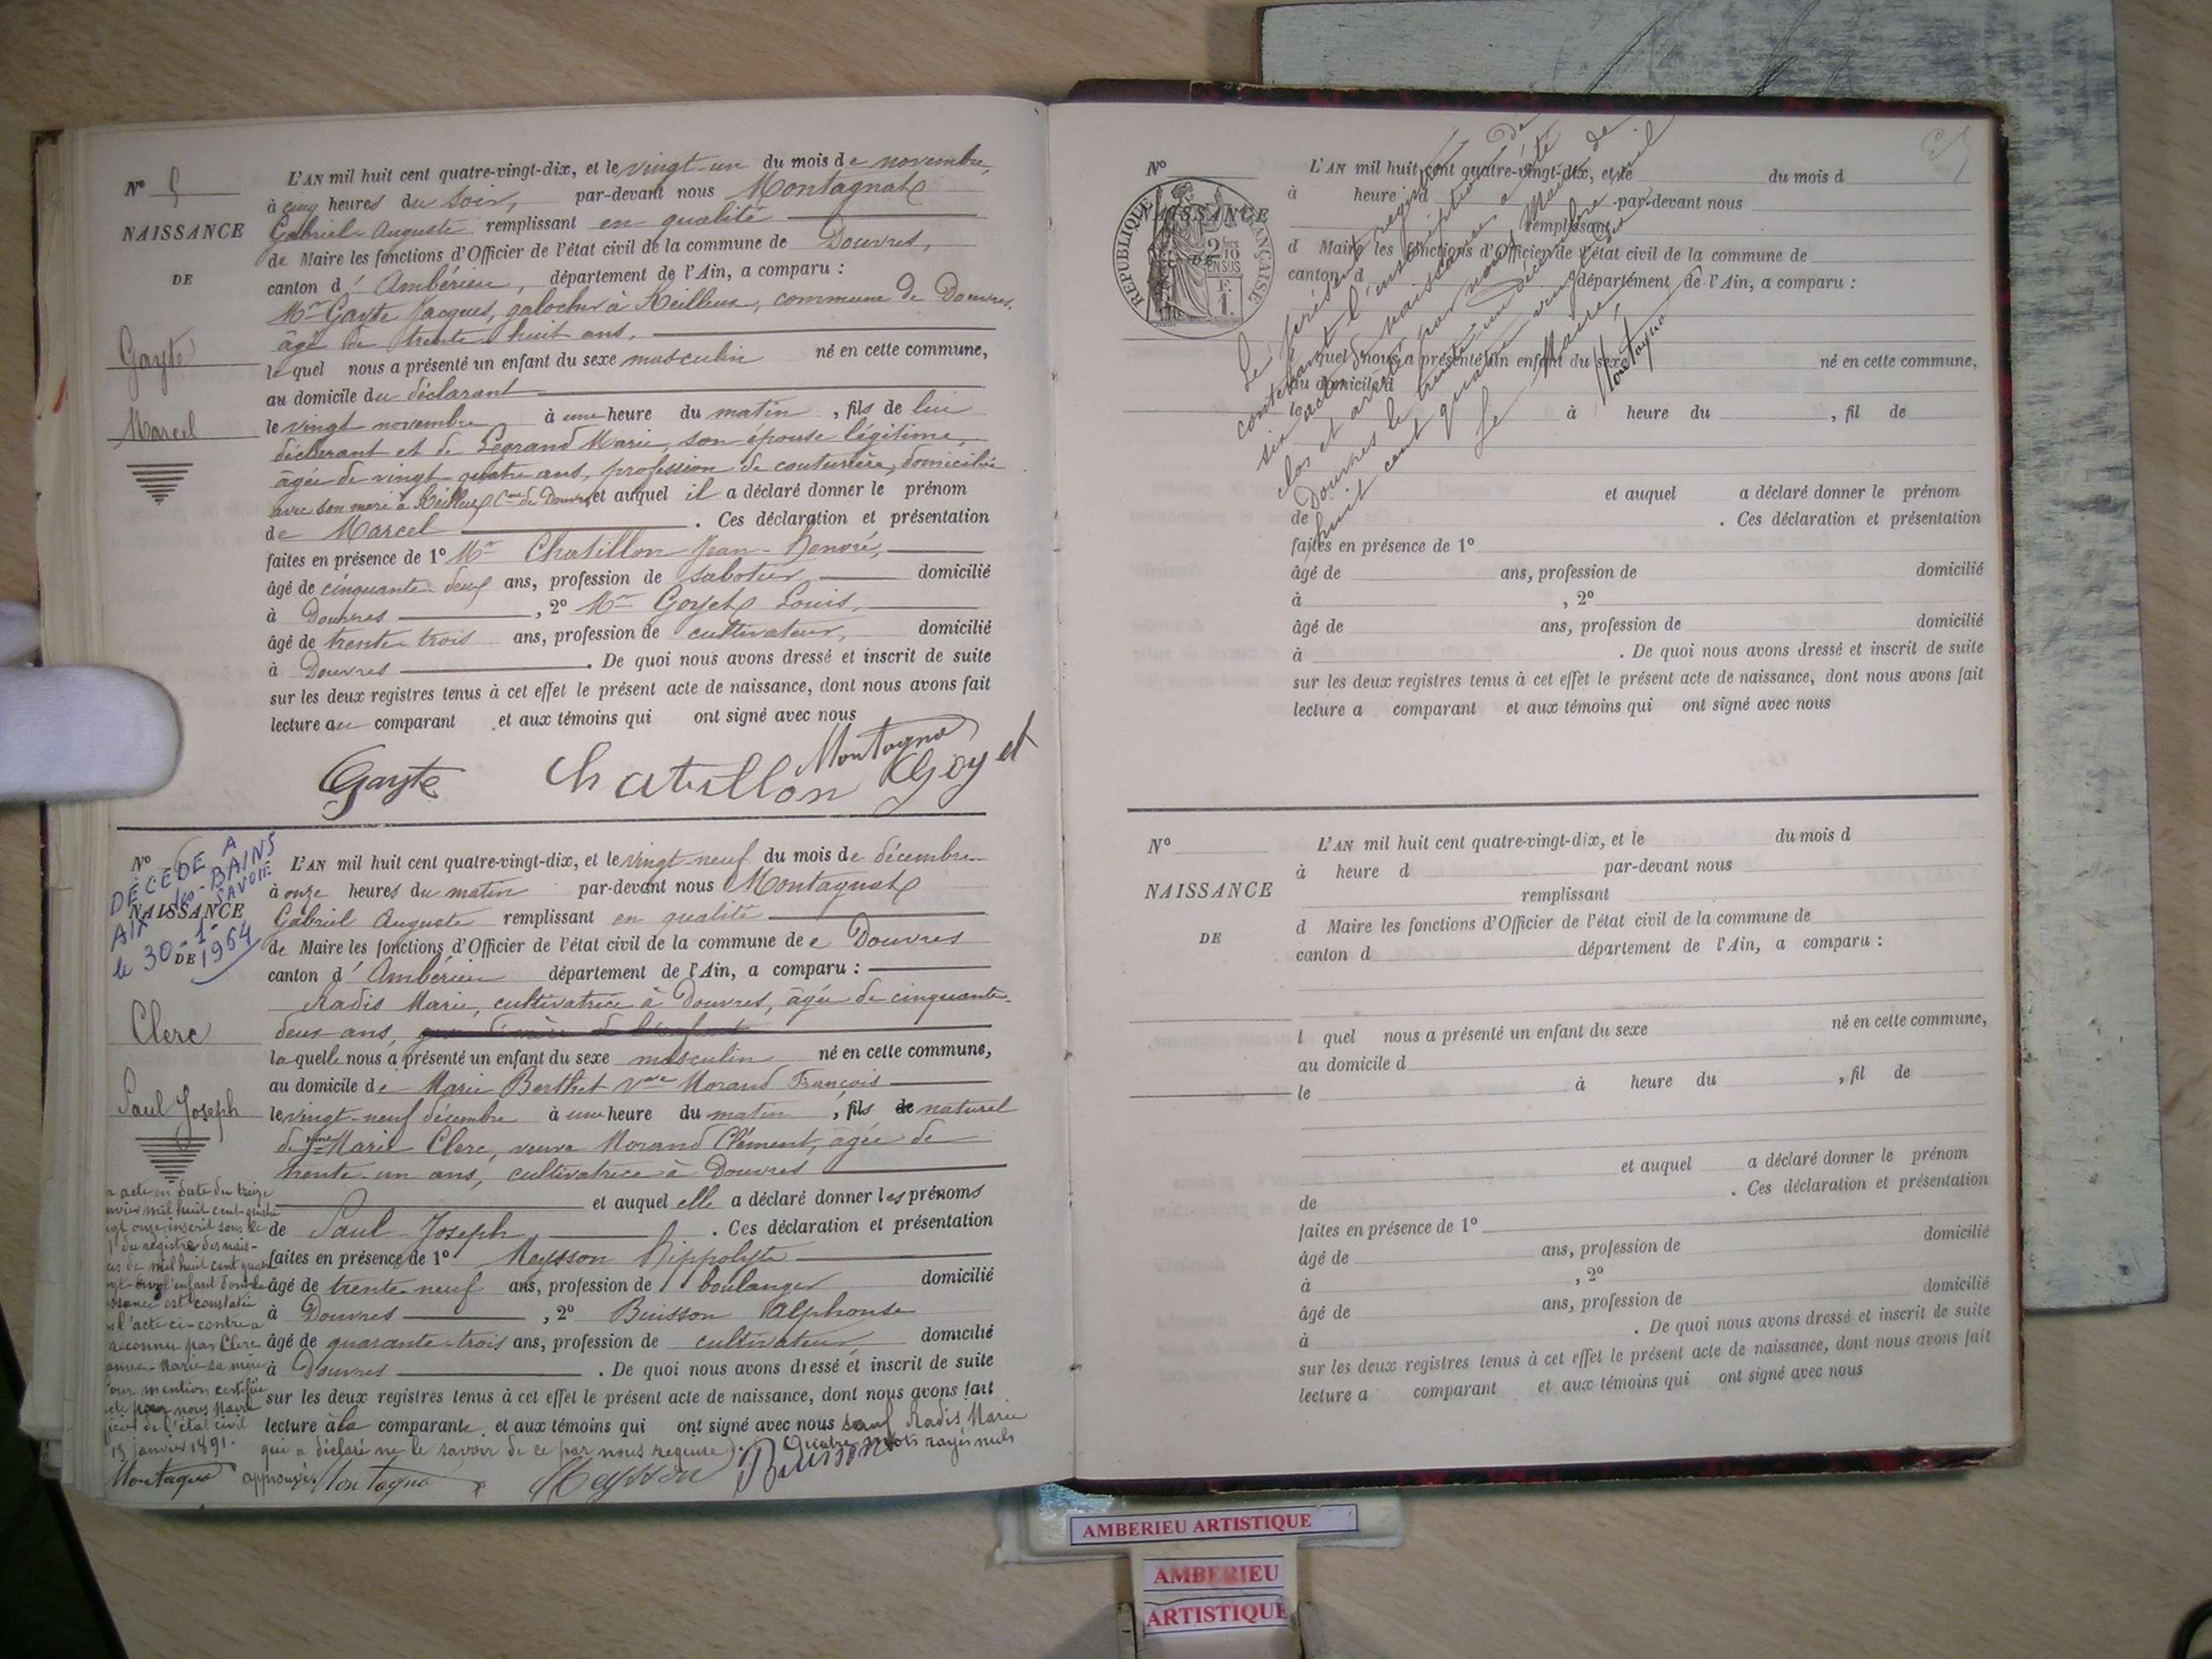 N° 5
NAISSANCE
DE
Gayte
Marcel
L'AN mil huit cent quatre-vingt-dix, et le vingt-un du mois de novembre,
à cinq heures du soir, par-devant nous Montagnat
Gabriel-Auguste remplissant en qualité
de Maire les fonctions d'Officier de l'état civil de la commune de Douvres,
canton d'Ambérieu, département de l'Ain, a comparu :
Mr Gayte Jacques, galochier à Reilleux, commune de Douvres,
âgé de trente-huit ans,
lequel nous a présenté un enfant du sexe masculin né en cette commune,
au domicile du déclarant
le vingt novembre à une heure du matin, fils de lui
déclarant et de Legrand Marie, son épouse légitime,
âgée de vingt-quatre ans, profession de couturière, domiciliée
avec son mari à Reilleux Cne de Douvres et auquel il a déclaré donner le prénom
de Marcel. Ces déclaration et présentation
faites en présence de 1° Mr Chatillon Jean-Honoré,
âgé de cinquante-deux ans, profession de sabotier domicilié
à Douvres, 2° Mr Goyet Louis,
âgé de trente-trois ans, profession de cultivateur, domicilié
à Douvres. De quoi nous avons dressé et inscrit de suite
sur les deux registres tenus à cet effet le présent acte de naissance, dont nous avons fait
lecture au comparant et aux témoins qui ont signé avec nous
Gayte Chatillon Montagnat Goyet
N°
DÉCÉDÉ A
AIX-les-BAINS
SAVOIE
le 30-1-1964
NAISSANCE
DE
Clerc
Paul Joseph
L'AN mil huit cent quatre-vingt-dix, et le vingt-neuf du mois de décembre
à onze heures du matin par-devant nous Montagnat
Gabriel Auguste remplissant en qualité
de Maire les fonctions d'Officier de l'état civil de la commune de Douvres
canton d'Ambérieu département de l'Ain, a comparu :
Radis Marie, cultivatrice à Douvres, âgée de cinquante-
deux ans,
laquelle nous a présenté un enfant du sexe masculin né en cette commune,
au domicile de Marie Berthet Vve Morand François
le vingt-neuf décembre à une heure du matin, fils de naturel
de Marie Clerc, veuve Morand Clément, âgée de
trente-un ans, cultivatrice à Douvres
et auquel elle a déclaré donner les prénoms
de Paul-Joseph. Ces déclaration et présentation
faites en présence de 1° Meysson Hippolyte
âgé de trente-neuf ans, profession de boulanger domicilié
à Douvres, 2° Buisson Alphonse
âgé de quarante-trois ans, profession de cultivateur domicilié
à Douvres. De quoi nous avons dressé et inscrit de suite
sur les deux registres tenus à cet effet le présent acte de naissance, dont nous avons fait
lecture à la comparante et aux témoins qui ont signé avec nous sauf Radis Marie
qui a déclaré ne le savoir de ce par nous requise. Quatre mots rayés nuls
approuvé. Montagnat Meysson Buisson
acte en date du treize
janvier mil huit cent quatre
vingt onze inscrit sous le
du registre des nais-
ces de mil huit cent quatre
vingt onze l'enfant dont la
naissance est constatée
l'acte ci-contre a
reconnu par Clerc
Anne-Marie sa mère
Pour mention certifiée
par nous Maire
officier de l'état civil
13 janvier 1891.
Montagnat
N°
NAISSANCE
DE
RÉPUBLIQUE FRANÇAISE
2/10 EN SUS
F. 1.
L'AN mil huit cent quatre-vingt-dix, et le du mois d
à heure d par-devant nous
remplissant
d Maire les fonctions d'Officier de l'état civil de la commune de
canton d département de l'Ain, a comparu :
l quel nous a présenté un enfant du sexe né en cette commune,
au domicile d
le à heure du , fil de
et auquel a déclaré donner le prénom
de . Ces déclaration et présentation
faites en présence de 1°
âgé de ans, profession de domicilié
à , 2°
âgé de ans, profession de domicilié
à . De quoi nous avons dressé et inscrit de suite
sur les deux registres tenus à cet effet le présent acte de naissance, dont nous avons fait
lecture a comparant et aux témoins qui ont signé avec nous
Le présent registre
contenant l'inscription de
six actes de naissance a été
clos et arrêté par nous Maire de
Douvres le trente un décembre mil
huit cent quatre vingt dix
Le Maire,
Montagnat
N°
NAISSANCE
DE
L'AN mil huit cent quatre-vingt-dix, et le du mois d
à heure d par-devant nous
remplissant
d Maire les fonctions d'Officier de l'état civil de la commune de
canton d département de l'Ain, a comparu :
l quel nous a présenté un enfant du sexe né en cette commune,
au domicile d
le à heure du , fil de
et auquel a déclaré donner le prénom
de . Ces déclaration et présentation
faites en présence de 1°
âgé de ans, profession de domicilié
à , 2°
âgé de ans, profession de domicilié
à . De quoi nous avons dressé et inscrit de suite
sur les deux registres tenus à cet effet le présent acte de naissance, dont nous avons fait
lecture a comparant et aux témoins qui ont signé avec nous
AMBERIEU ARTISTIQUE
AMBERIEU
ARTISTIQUE